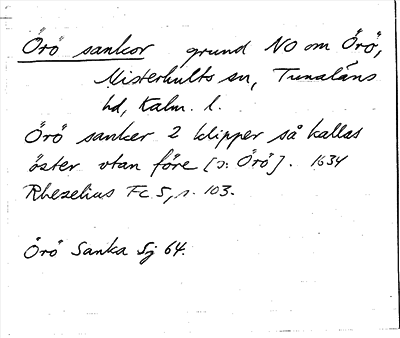 Örö sankor grund NO om Örö,
Misterhults sn, Tunaläns
hd, Kalm. l.
Örö sanker 2 klipper så kallas
öster utan före [ɔ: Örö]. 1634
Rhezelius Fc 5, s. 103.
Örö Sanka Sj 64.